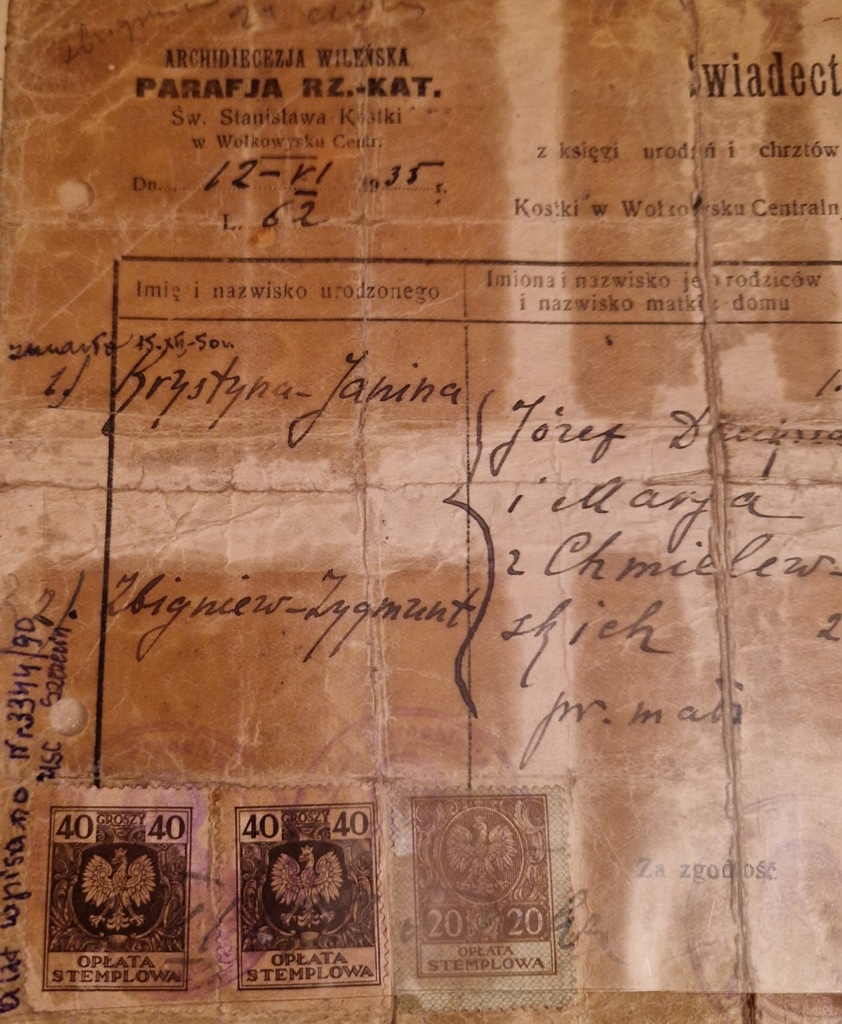 ARCHIDIECEZJA WILEŃSKA
PARAFJA RZ.-KAT.
Św. Stanisława Kostki
w Wołkowysku Centr.
Dn. 12-VI 1935 r.
L. 62
Świadect
z księgi urodzeń i chrztów
Kostki w Wołkowysku Centraln
Imię i nazwisko urodzonego
Imiona i nazwisko jego rodziców
i nazwisko matki z domu
zmarła 15.XII-50r.
1.) Krystyna-Janina
1.
Józef
i Marja
z Chmielew-
skich
2
pr.
2). Zbigniew-Zygmunt
wpisano nr 3344/90
USC Szczecin
40 GROSZY 40
OPŁATA
STEMPLOWA
40 GROSZY 40
OPŁATA
STEMPLOWA
20 G 20
OPŁATA
STEMPLOWA
Za zgodność